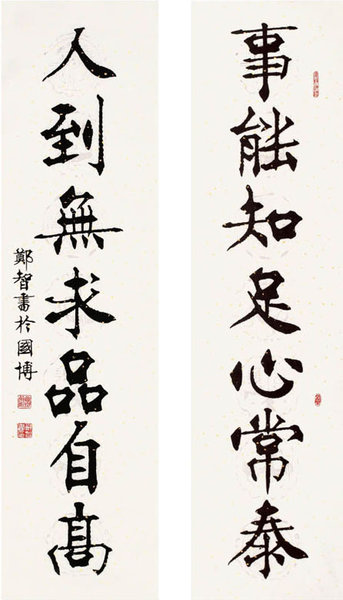 事能知足心常泰
人到無求品自高
鄭智書於國博